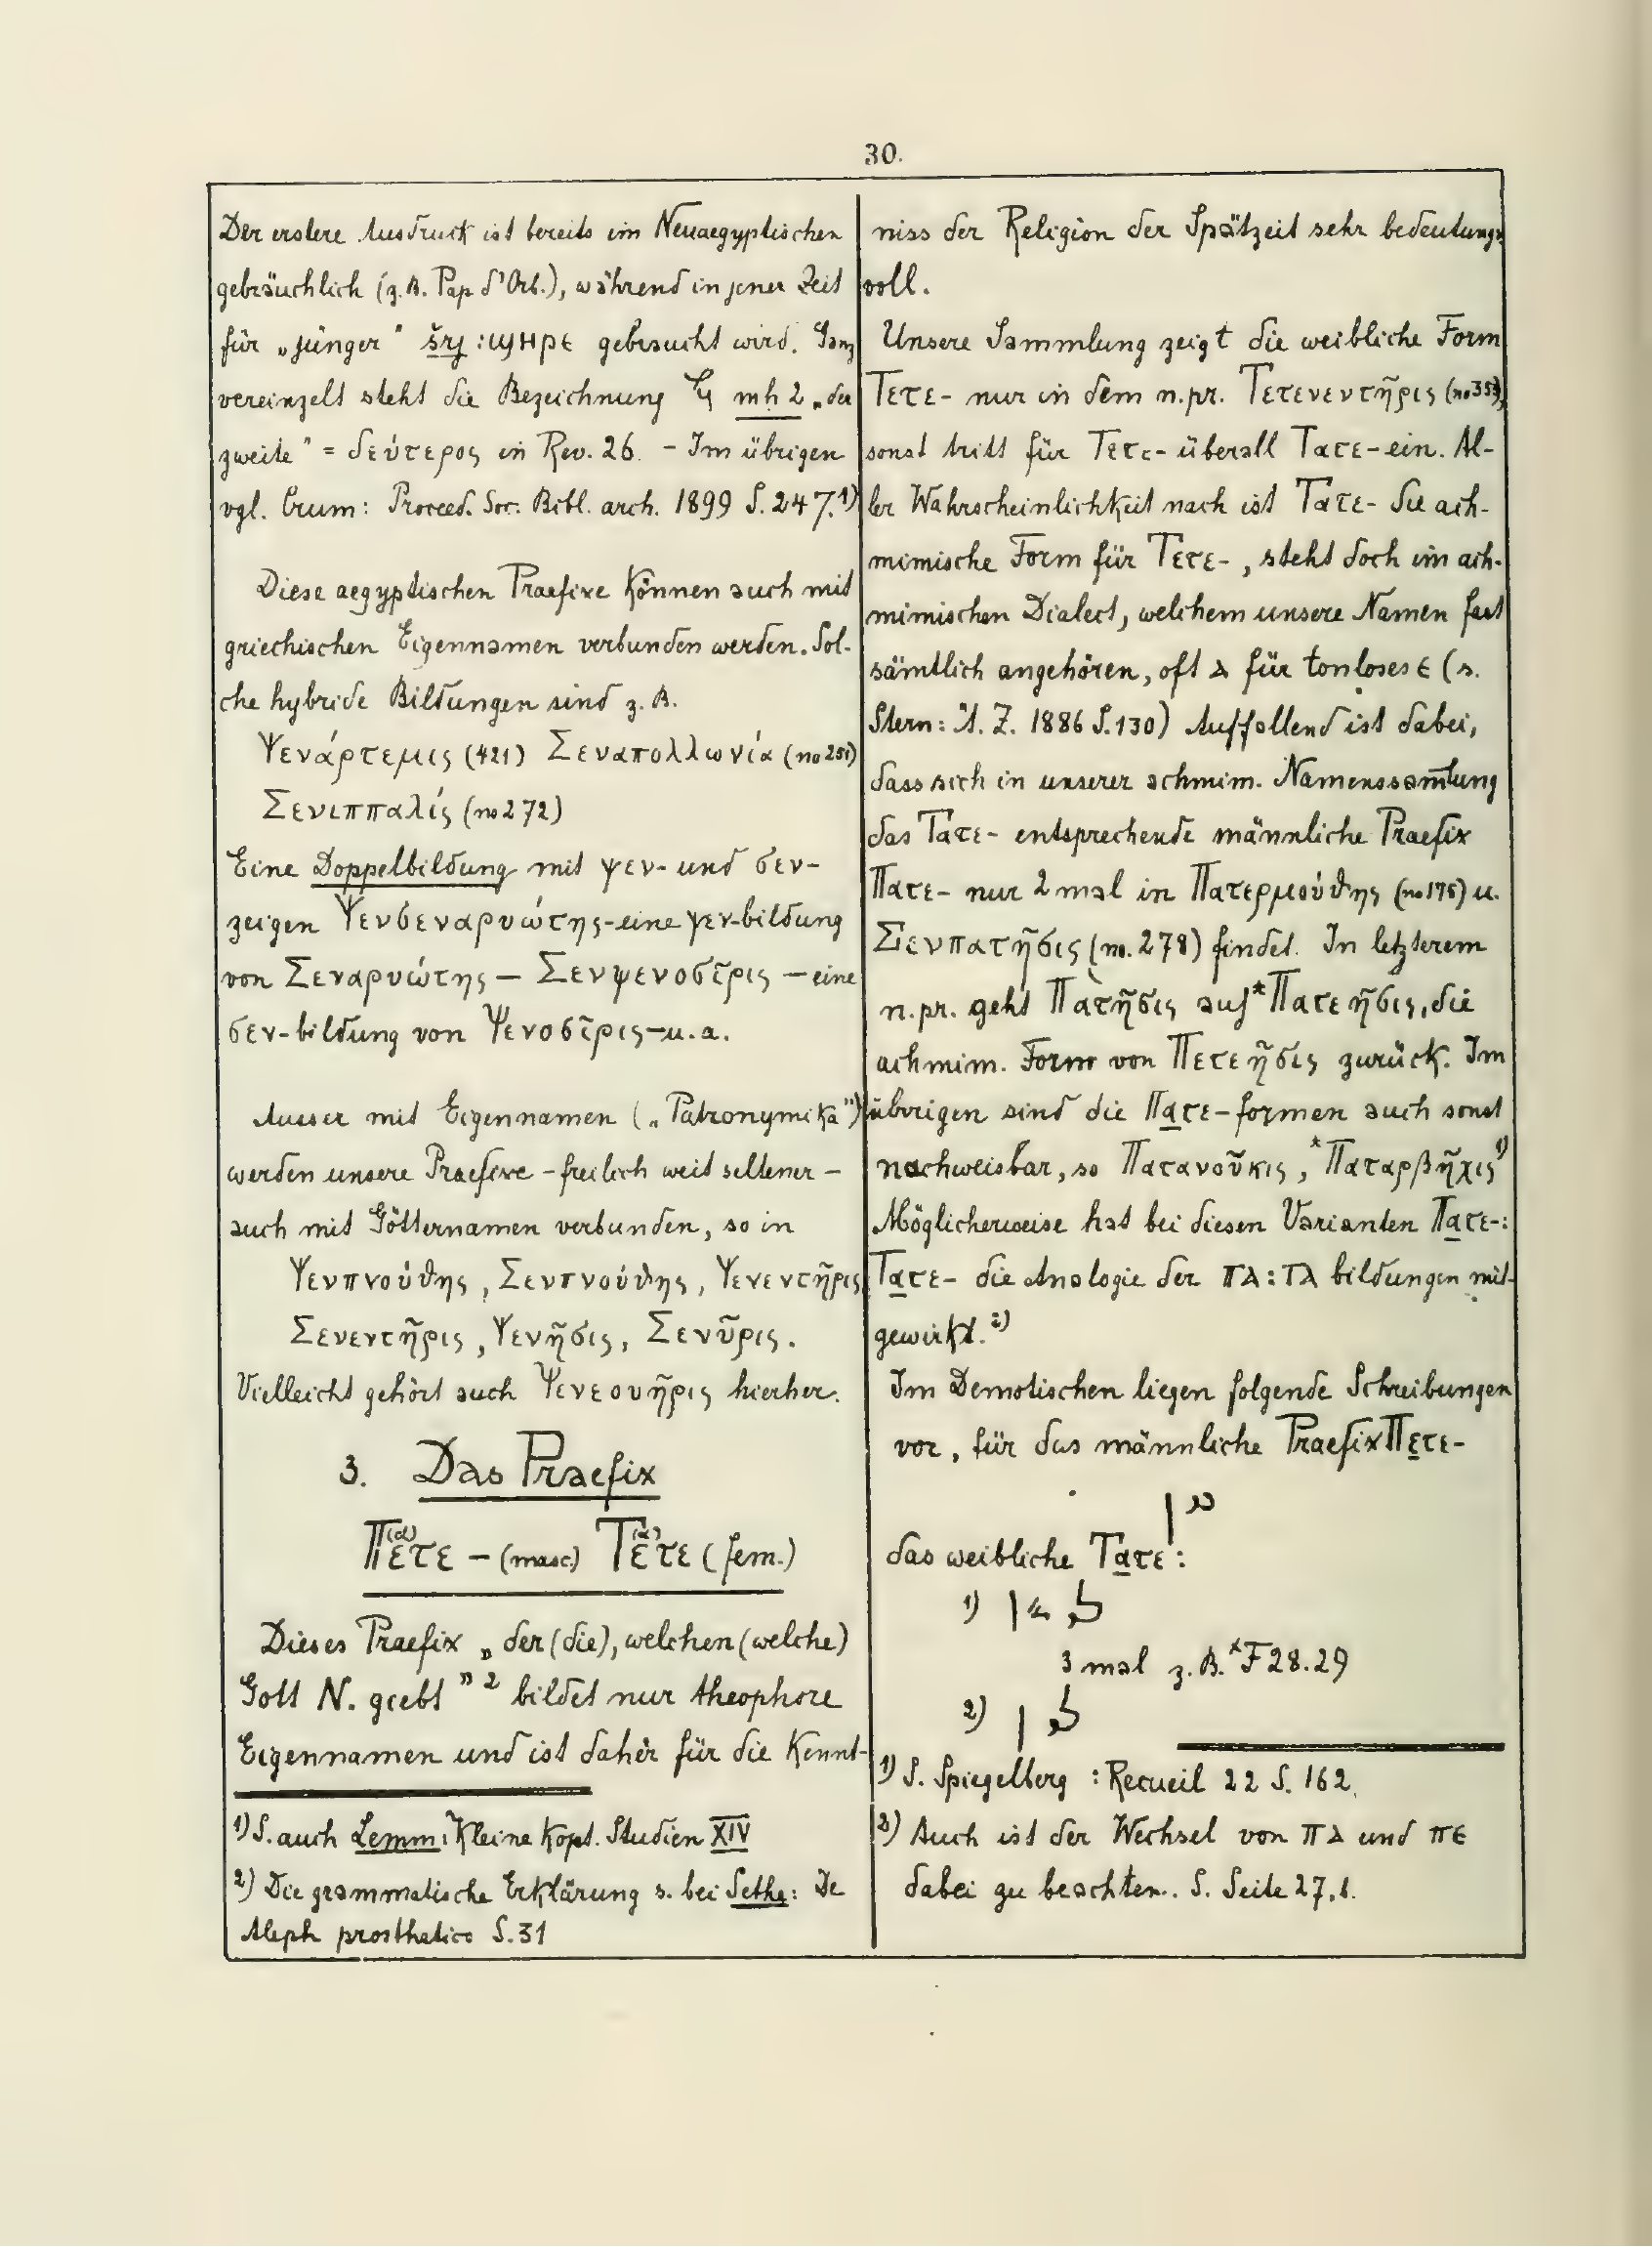 30.
Der erstere Ausdruck ist bereits im Neuaegyptischen
gebräuchlich (z.B. Pap d'Orb.), während in jener Zeit
für „jünger" šrj : ϣHpЄ gebraucht wird. Ganz
vereinzelt steht die Bezeichnung mḥ 2 „der
zweite" = δεύτερος in Rev. 26. - Im übrigen
vgl. Crum: Proceed. Soc. Bibl. arch. 1899 S. 247.¹)
Diese aegyptischen Praefixe können auch mit
griechischen Eigennamen verbunden werden. Sol-
che hybride Bildungen sind z. B.
Ψενάρτεμις (421) Σεναπολλωνία (no 251)
Σενιππαλίς (no 272)
Eine Doppelbildung mit ψεν- und σεν-
zeigen Ψενσεναρυώτης - eine ψεν-bildung
von Σεναρυώτης — Σενψενοσῖρις — eine
σεν-bildung von Ψενοσῖρις — u. a.
Ausser mit Eigennamen („Patronymika")
werden unsere Praefixe - freilich weit seltener -
auch mit Götternamen verbunden, so in
Ψενπνούθης, Σενπνούθης, Ψενεντῆρις
Σενεντῆρις, Ψενῆσις, Σενῦρις.
Vielleicht gehört auch Ψενεουῆρις hierher.
3. Das Praefix
Πε(α)τε - (masc.) Τε(α)τε (fem.)
Dieses Praefix „der (die), welchen (welche)
Gott N. giebt" ² bildet nur theophore
Eigennamen und ist daher für die Kennt-
1) S. auch Lemm: Kleine kopt. Studien XIV
2) Die grammatische Erklärung s. bei Sethe: De
Aleph prosthetico S. 31
niss der Religion der Spätzeit sehr bedeutungs
voll.
Unsere Sammlung zeigt die weibliche Form
Τετε- nur in dem n. pr. Τετενεντῆρις (no 353),
sonst tritt für Τετε- überall Τατε- ein. Al-
ler Wahrscheinlichkeit nach ist Τατε- die ach-
mimische Form für Τετε-, steht doch im ach-
mimischen Dialect, welchem unsere Namen fast
sämtlich angehören, oft ⲁ für tonloses ⲉ (s.
Stern: Ä. Z. 1886 S. 130) Auffallend ist dabei,
dass sich in unserer achmim. Namenssam̅lung
das Τατε- entsprechende männliche Praefix
Πατε- nur 2 mal in Πατερμούθης (no 176) u.
Σενπατῆσις (no. 278) findet. In letzterem
n. pr. geht Πατῆσις auf *Πατεῆσις, die
achmim. Form von Πετεῆσις zurück. Im
übrigen sind die Πατε-formen auch sonst
nachweisbar, so Πατανοῦκις, *Παταρβῆχις¹)
Möglicherweise hat bei diesen Varianten Πατε-:
Τατε- die Analogie der ⲡⲁ : ⲧⲁ bildungen mit-
gewirkt.²)
Im Demotischen liegen folgende Schreibungen
vor, für das männliche Praefix Πετε-
das weibliche Τατε:
1)
3 mal z. B. *F 28.29
2)
1) S. Spiegelberg : Recueil 22 S. 162.
2) Auch ist der Wechsel von ⲡⲁ und ⲡⲉ
dabei zu beachten. S. Seite 27, 1.